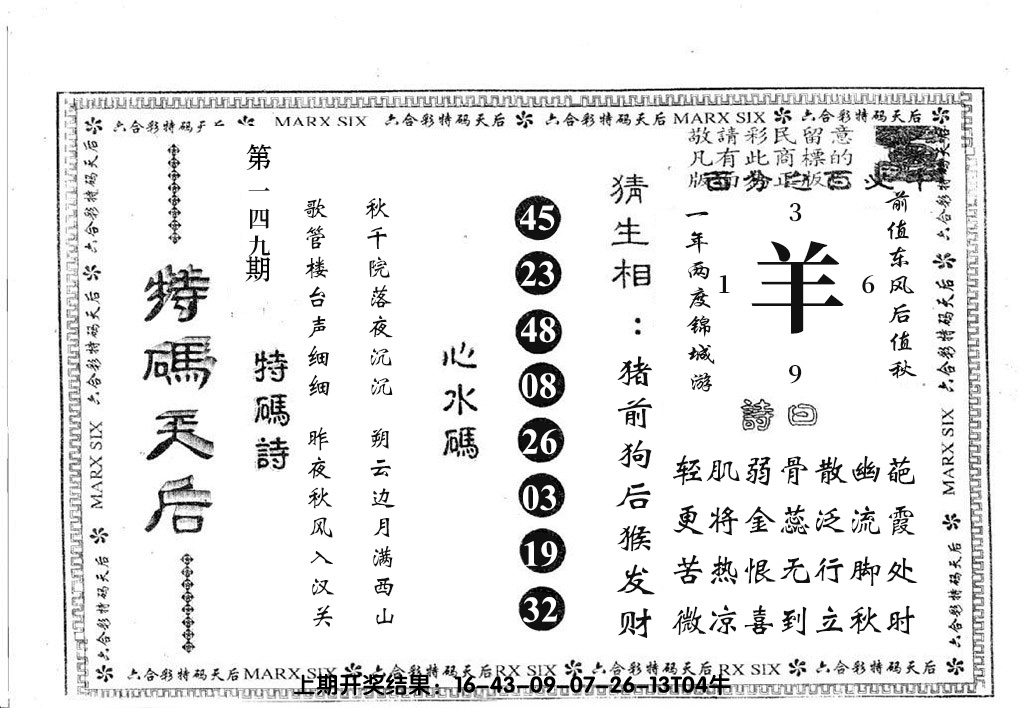 六合彩特码天后 MARX SIX 六合彩特码天后 六合彩特码天后 MARX SIX 六合彩特码天后
敬請彩民留意
凡有此商標的
版面为正版
前值东风后值秋
3
1 羊 6
9
一年两度锦城游
詩曰
轻肌弱骨散幽葩
更将金蕊泛流霞
苦热恨无行脚处
微凉喜到立秋时
猜生相：猪前狗后猴发财
45
23
48
08
26
03
19
32
心水碼
秋千院落夜沉沉 朔云边月满西山
歌管楼台声细细 昨夜秋风入汉关
第一四九期
特碼詩
特碼天后
六合彩特码天后 六合彩特码天后 MARX SIX 六合彩特码天后
六合彩特码天后 六合彩特码天后 MARX SIX 六合彩特码天后
六合彩特码天后 MARX SIX 六合彩特码天后 RX SIX 六合彩特码天后 RX SIX 六合彩特码天后
上期开奖结果：16-43-09-07-26-13T04牛